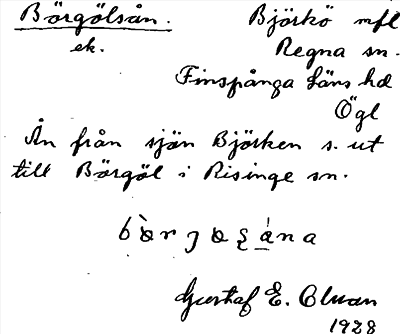 Börgölsån. Björkö mfl
ek. Regna sn.
Finspånga Läns hd
Ögl
Ån från sjön Björken s. ut
till Börgöl i Risinge sn.
Gustaf E.
1928